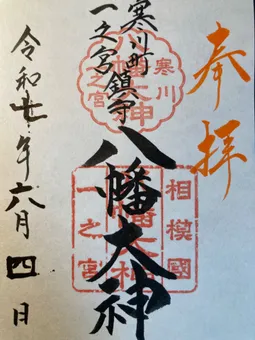 奉拝
寒川町鎮守
一之宮
八幡大神
令和 年六月四日
寒川
八幡大神
一之宮
相模國
八幡大神
一之宮